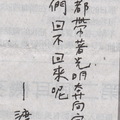 都帶著光明奔向
們回不回來呢
—